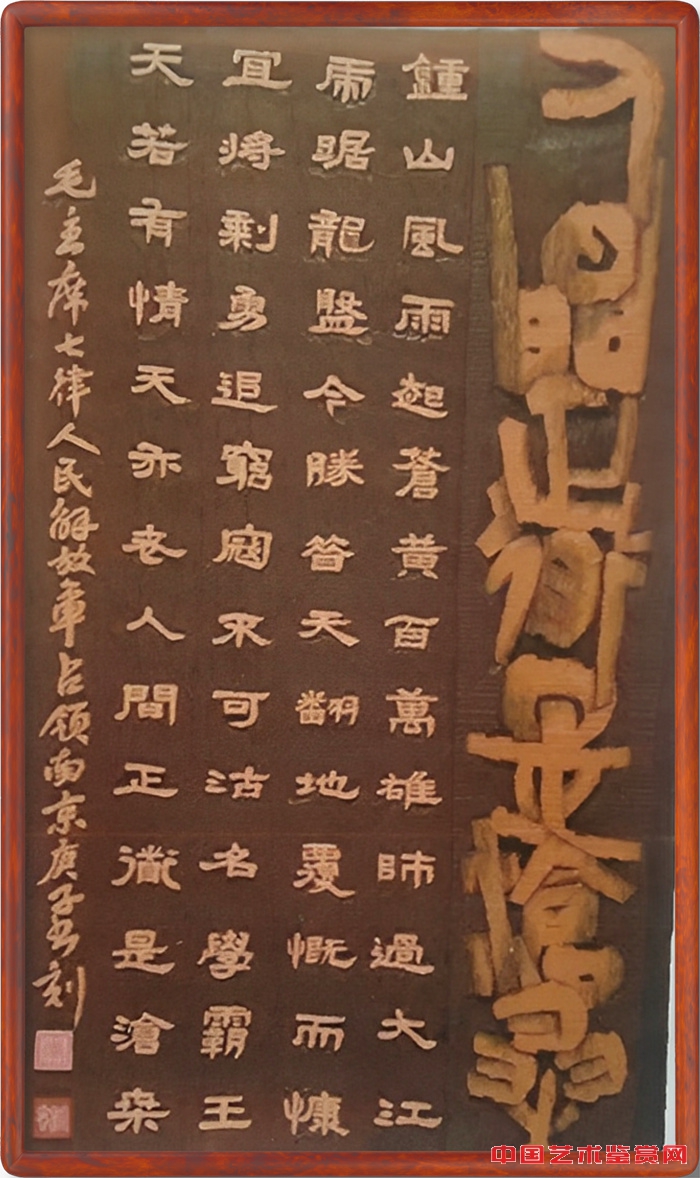 人間正道是滄桑
鍾山風雨起蒼黃百萬雄師過大江
虎踞龍盤今勝昔天翻地覆慨而慷
宜將剩勇追窮寇不可沽名學霸王
天若有情天亦老人間正道是滄桑
毛主席七律人民解放軍占領南京庚子刻
中国艺术鉴赏网